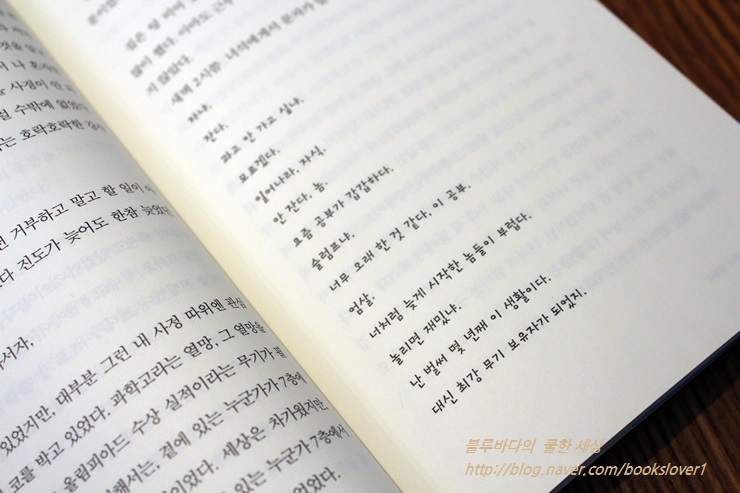 것을
서 나
사정이 안
수밖에 없었
는 호락호락한 것이
거부하고 말고 할 일이
진도가 늦어도 한참 늦었던
서자,
있었지만, 대부분 그런 내 사정 따위엔 관심
코를 박고 있었다. 과학고라는 열망, 그 열망을
올림피아드 수상 실적이라는 무기가 필
해서는, 곁에 있는 누군가가 7층에
이었다. 세상은 차가웠지만
있는 누군가 7층에서
새벽 2시쯤 녀석에게서 문자가
자냐.
잔다.
과고 안 가고 싶냐.
모르겠다.
일어나라, 자식.
안 잔다, 놈.
요즘 공부가 갑갑하다.
슬럼프냐.
너무 오래 한 것 같다, 이 공부.
엄살.
너처럼 늦게 시작한 놈들이 부럽다.
놀리면 재밌냐.
난 벌써 몇 년째 이 생활이다.
대신 최강 무기 보유자가 되었지.
블루바다의 쿨한 세상
http://blog.naver.com/bookslover1